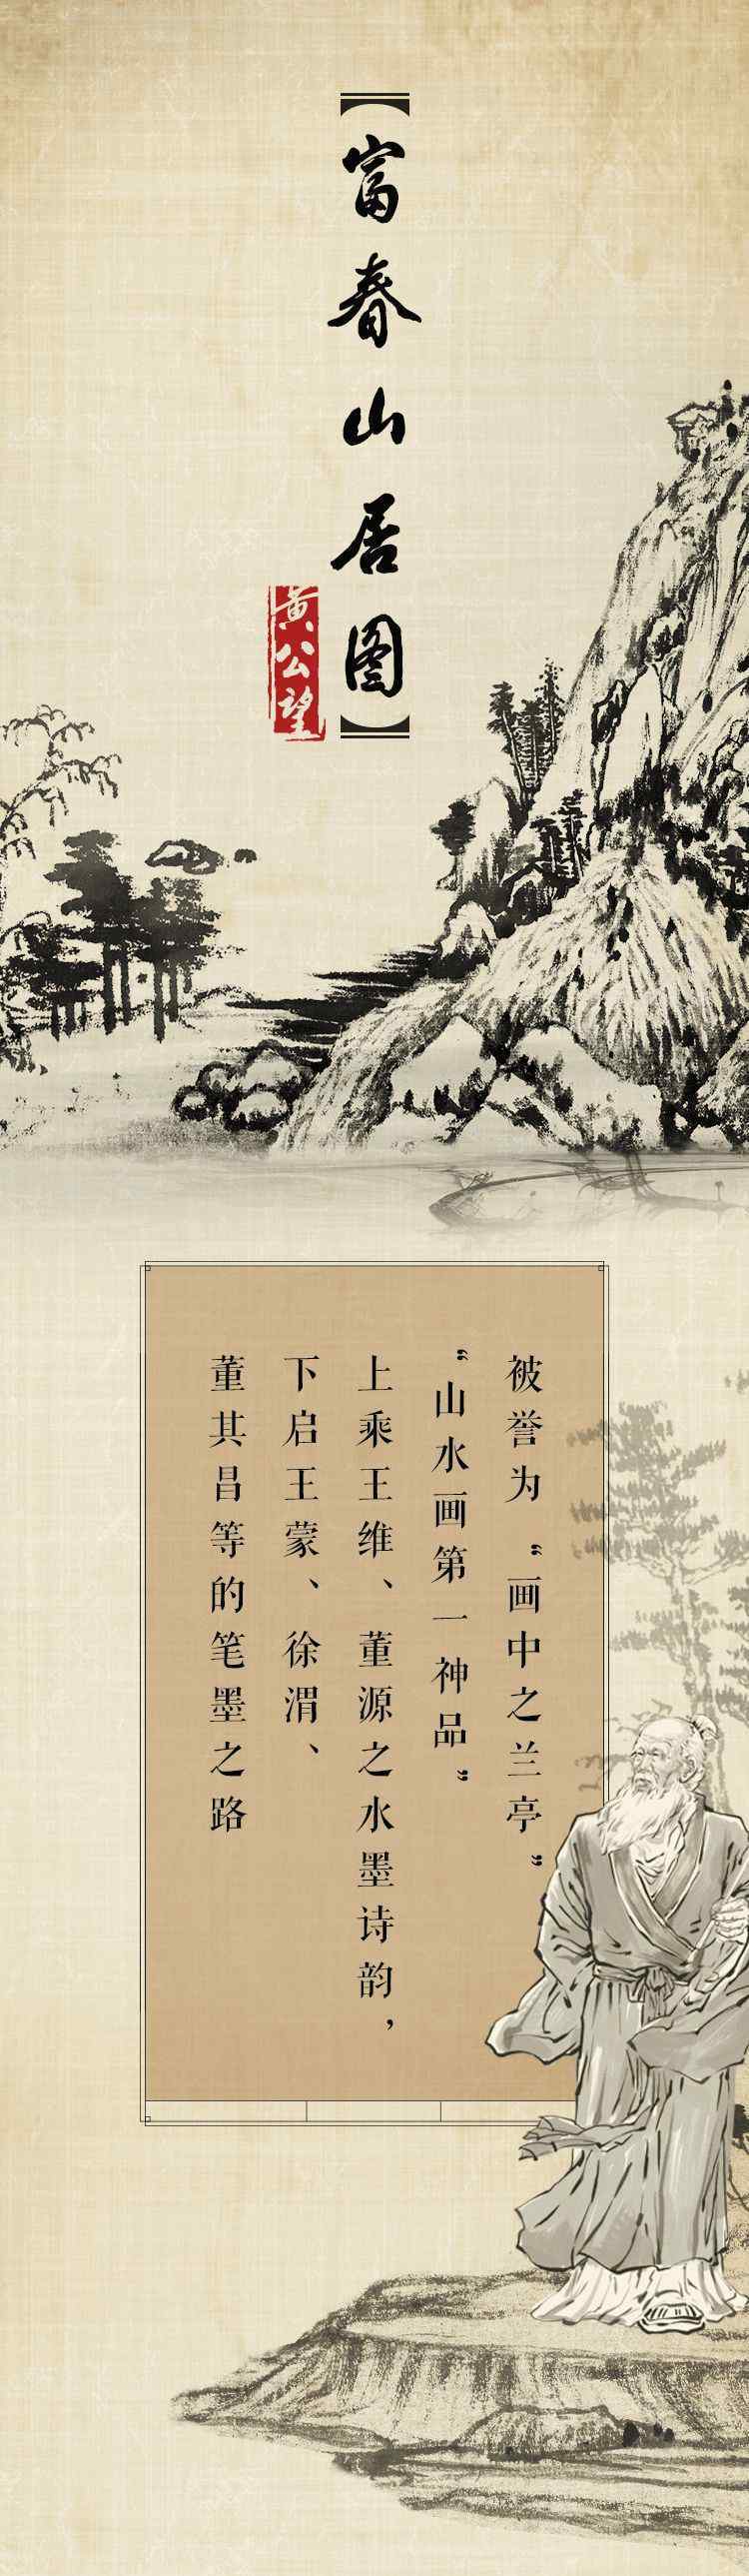 【富春山居图】
黄公望
被誉为“画中之兰亭”
“山水画第一神品”
上乘王维、董源之水墨诗韵，
下启王蒙、徐渭、
董其昌等的笔墨之路